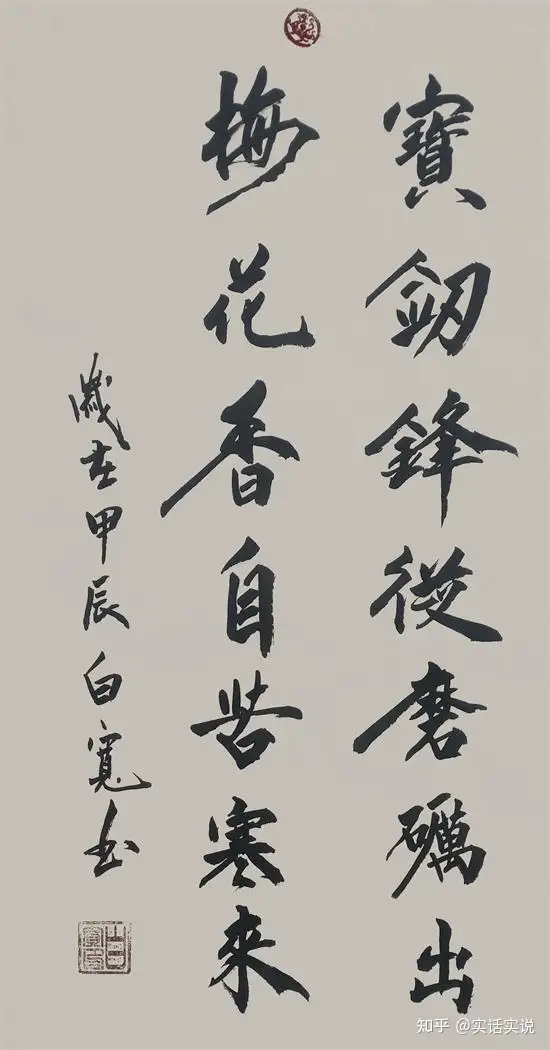 寶劒鋒從磨礪出
梅花香自苦寒來
歲在甲辰白寬書
知乎 @实话实说